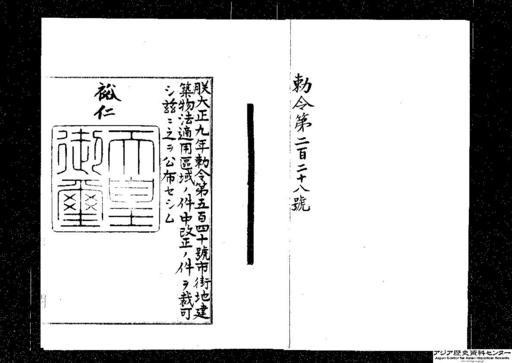 勅令第二百二十八號
朕大正九年勅令第五百四十號市街地建
築物法適用區域ノ件中改正ノ件ヲ裁可
シ茲ニ之ヲ公布セシム
裕仁
天皇
御璽
アジア歴史資料センター
Japan Center for Asian Historical Records